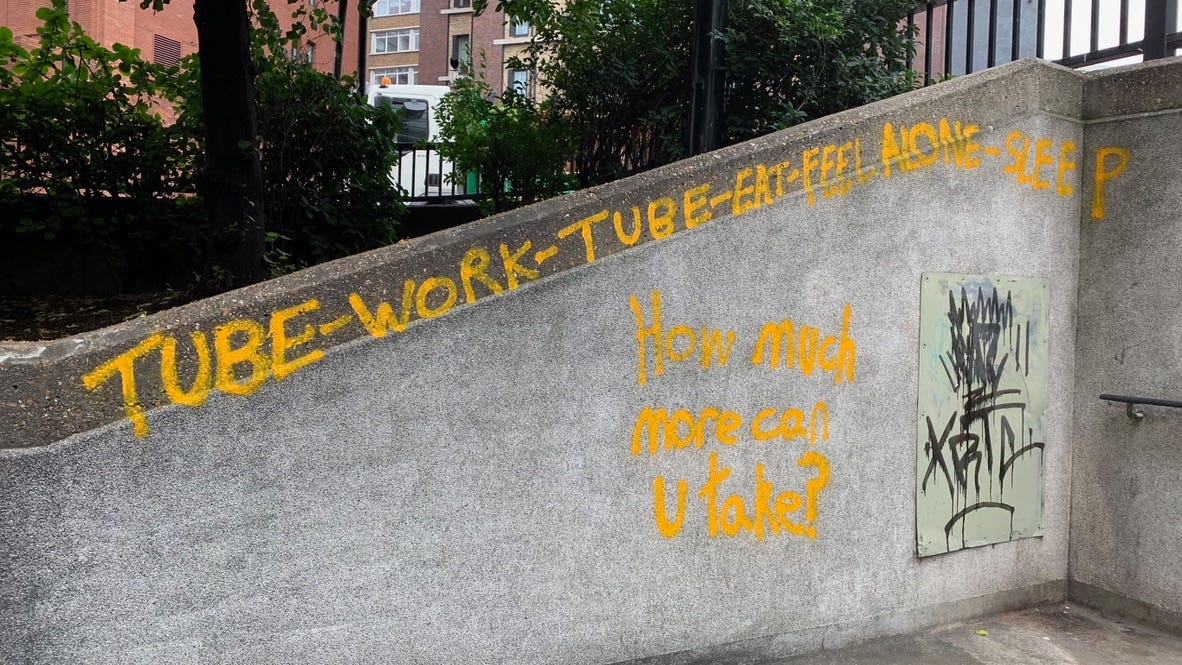 TUBE-WORK-TUBE-EAT-FEEL ALONE-SLEEP
How much
more can
u take?